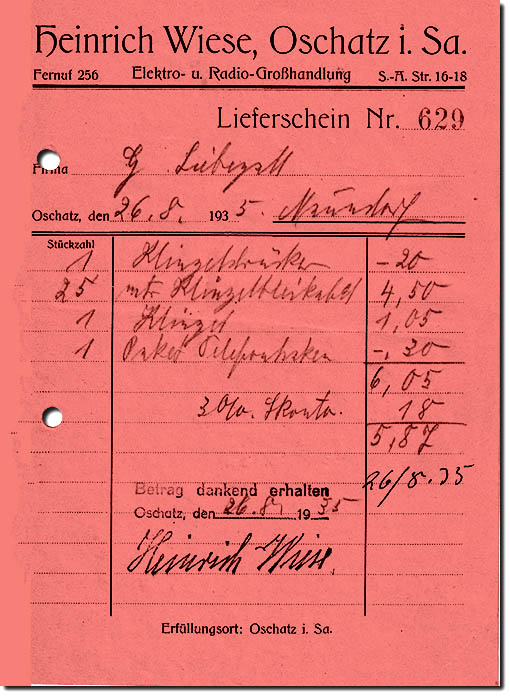 Heinrich Wiese, Oschatz i. Sa.
Fernuf 256 Elektro- u. Radio-Großhandlung S.-A. Str. 16-18
Lieferschein Nr. 629
Firma G
Oschatz, den 26. 8. 1935.
Stückzahl
1 Klingeldrücker -20
25 mtr. Klingelbleikabel 4,50
1 Klingel 1,05
1 Paket Telefonhaken -,30
6,05
3% Skonto. 18
5,87
26/8.35
Betrag dankend erhalten
Oschatz, den 26.8. 1935
Heinrich Wiese.
Erfüllungsort: Oschatz i. Sa.